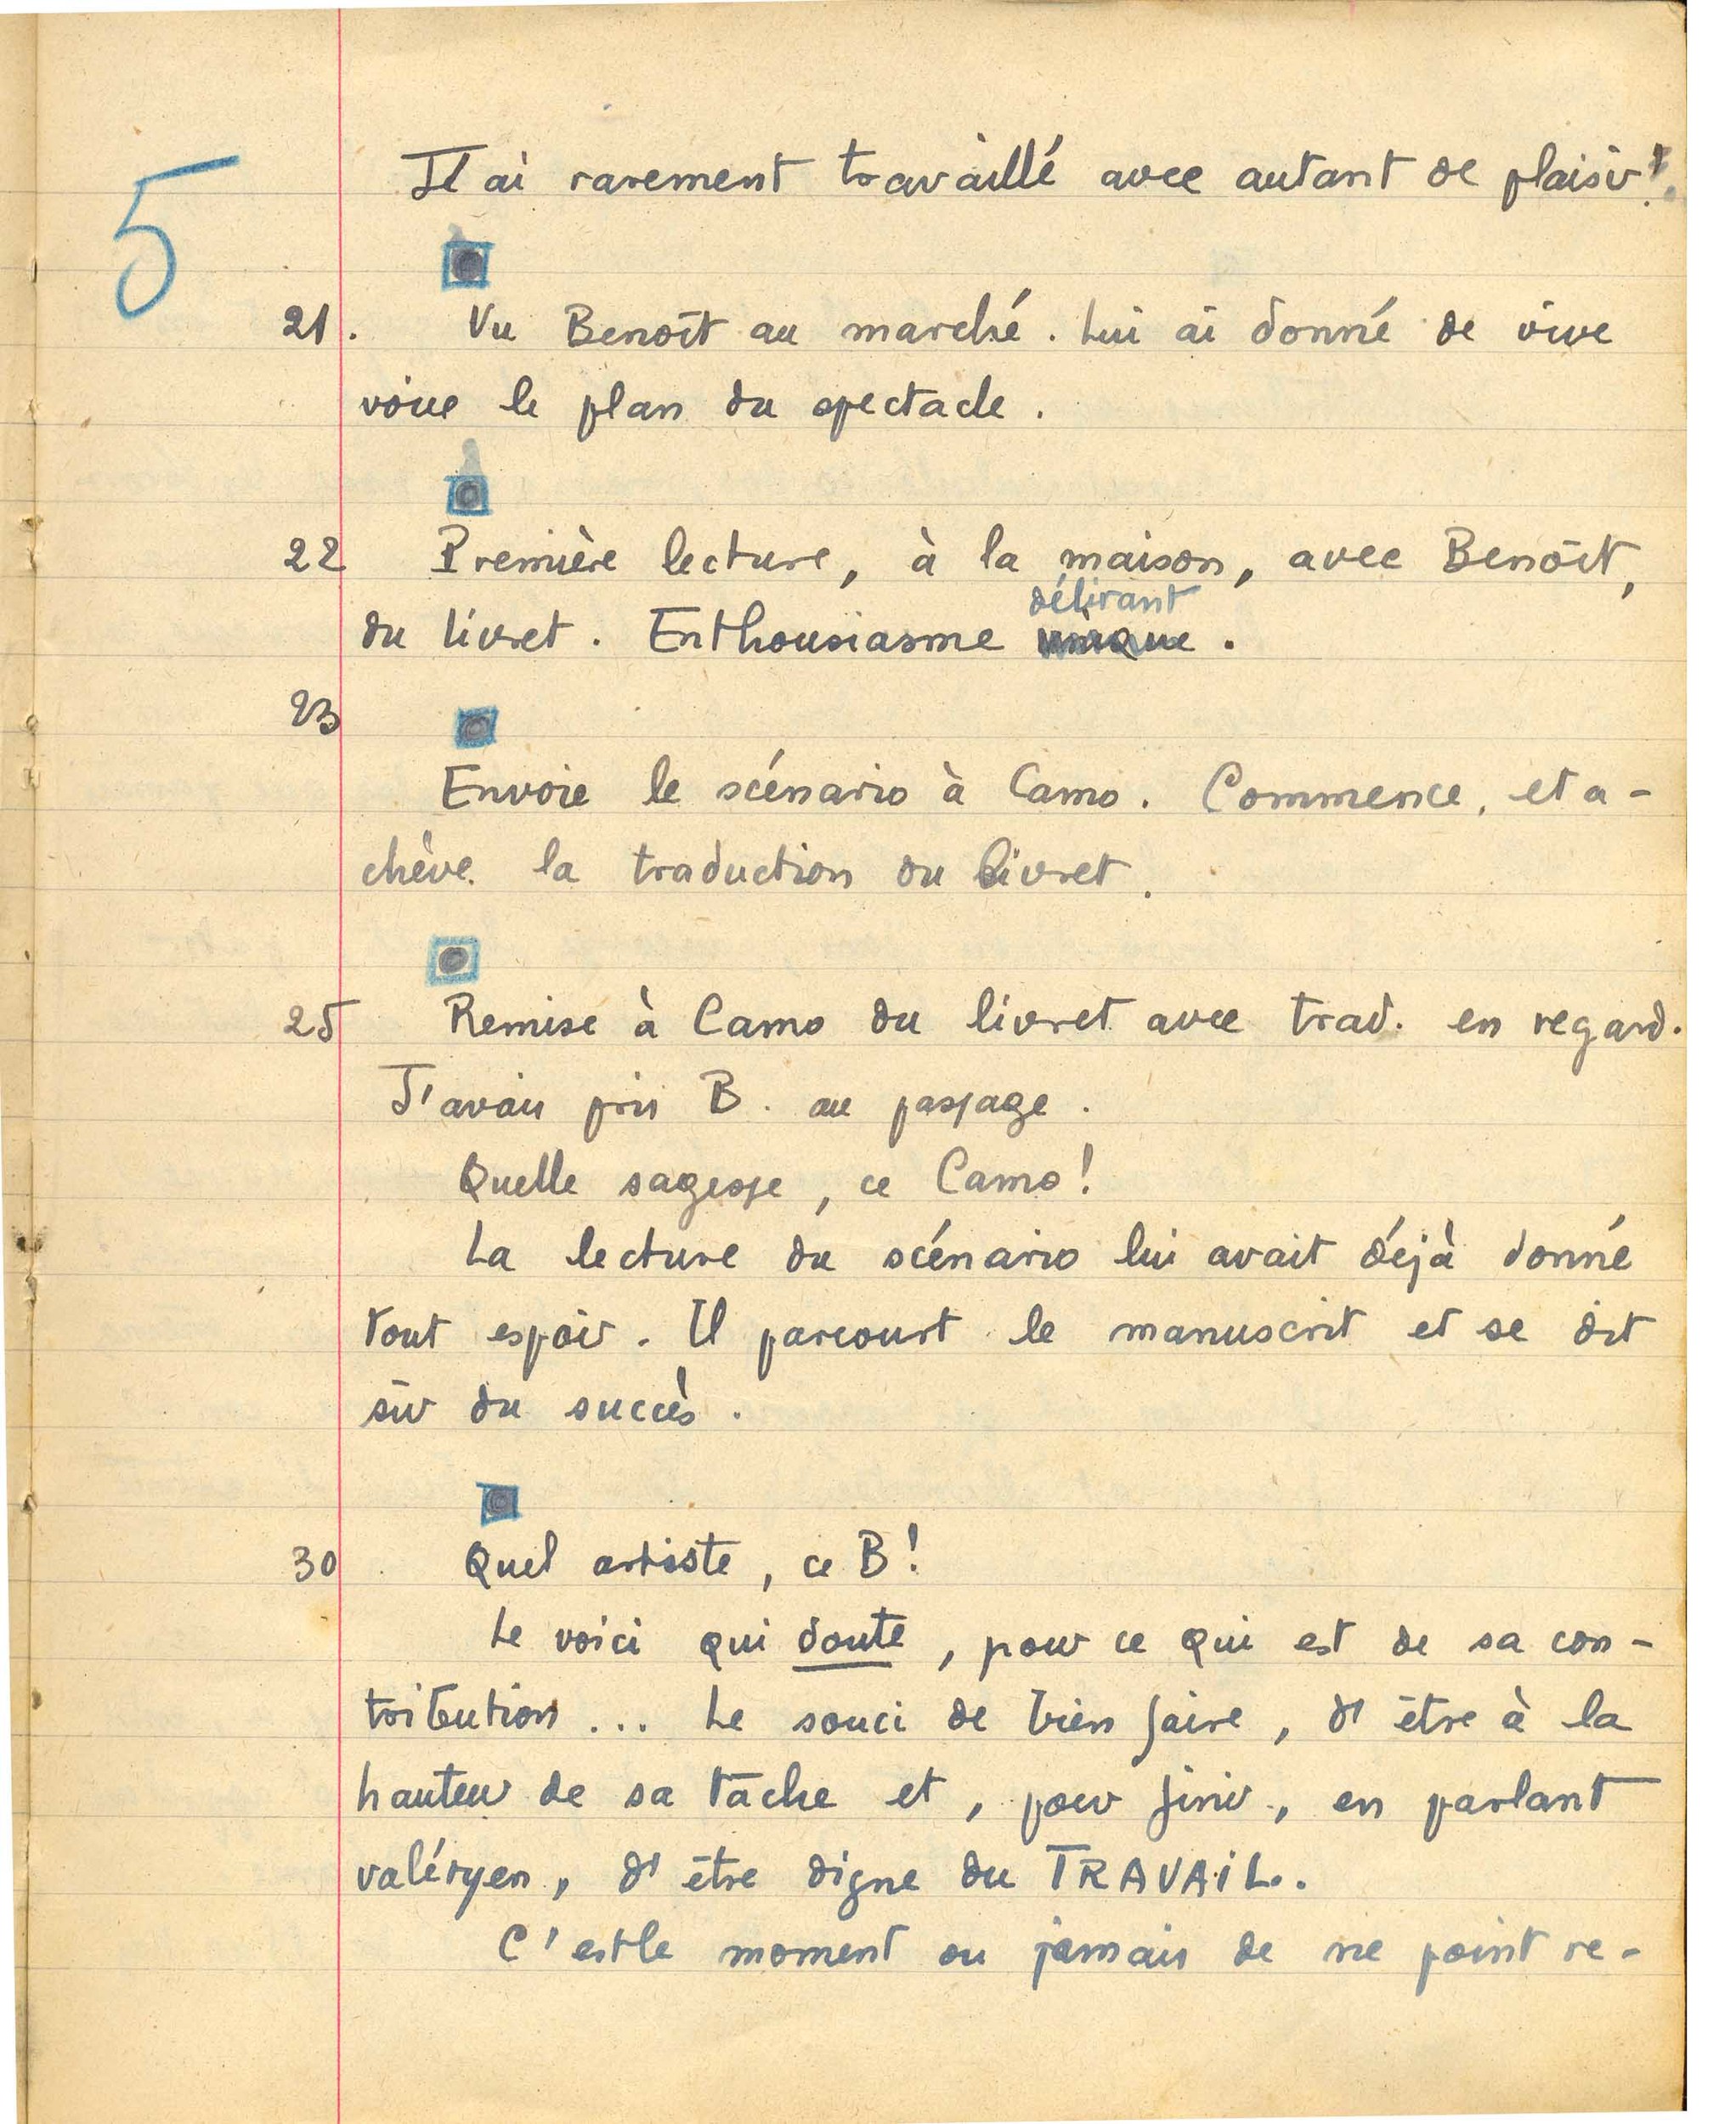 5
J'ai rarement travaillé avec autant de plaisir !
21. Vu Benoît au marché. Lui ai donné de vive
voix le plan du spectacle.
22 Première lecture, à la maison, avec Benoît,
délirant
du livret. Enthousiasme unique.
23
Envoie le scénario à Camo. Commence, et a-
chève la traduction du livret.
25 Remise à Camo du livret avec trad. en regard.
J'avais pris B. au passage.
Quelle sagesse, ce Camo!
La lecture du scénario lui avait déjà donné
tout espoir. Il parcourt le manuscrit et se dit
sûr du succès.
30 Quel artiste, ce B!
Le voici qui doute, pour ce qui est de sa con-
tribution... Le souci de bien faire, d'être à la
hauteur de sa tâche et, pour finir, en parlant
valéryen, d'être digne du TRAVAIL.
C'est le moment ou jamais de ne point re-